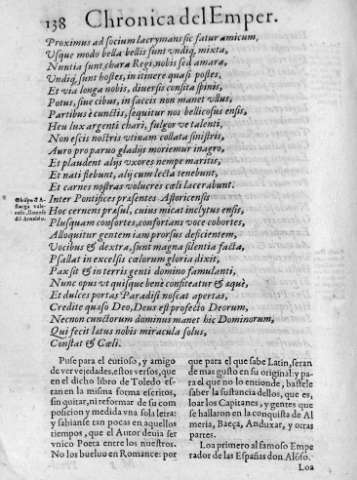 138 Chronica del Emper.
Proximus ad socium lacrymans sic fatur amicum,
Usque modo bella bellis sunt vndiq; mixta,
Nuntia sunt, chara Regi, nobis sed amara,
Undiq; sunt hostes, in itinere quasi postes,
Et via longa nobis, diversis consita spinis,
Potus, sive cibus, in saccis non manet vllus,
Partibus è cunctis, sequitur nos bellicosus ensis,
Heu lux argenti chari, fulgor ve talenti,
Non es ijs nostris vtinam collata sinistris,
Auro pro paruo gladijs moriemur in agro,
Et plaudent alijs vxores nempe maritis,
Et nati flebunt, alij cum lecta tenebunt,
Et carnes nostras volucres cœli lacerabunt.
Inter Pontifices præsentes Astoricensis
Hoc cernens præsul, cuius micat inclytus ensis,
Plusquam consortes, confortans voce cohortes,
Alloquitur gentem iam prorsus deficientem,
Vocibus & dextra, sunt magna silentia facta,
Psallat in excelsis cælorum gloria dixit,
Pax sit & in terris genti domino famulanti,
Nunc opus vt quisque benè confiteatur & æquè,
Et dulces portas Paradisi noscat apertas,
Credite quæso Deo, Deus est profecto Deorum,
Necnon cunctorum dominus manet hic Dominorum,
Qui fecit latus nobis miracula solus,
Constat & Cœli.
Puse para el curioso, y amigo
de ver vejedades, estos versos, que
en el dicho libro de Toledo es-
tan en la misma forma escritos,
sin quitar, ni reformar de su com
posicion y medida vna sola letra:
y sabianse tan pocas en aquellos
tiempos, que el Autor deuia ser
vnico Poeta entre los nuestros.
No los bueluo en Romance: por
que para el que sabe Latin, seran
de mas gusto en su original: y pa-
ra el que no lo entiende, bastele
saber la sustancia dellos, que es,
loar los Capitanes, y gentes que
se hallaron en la conquista de Al
meria, Baeça, Anduxar, y otras
partes.
Loa primero al famoso Empe
rador de las Españas don Alõso.
Loa